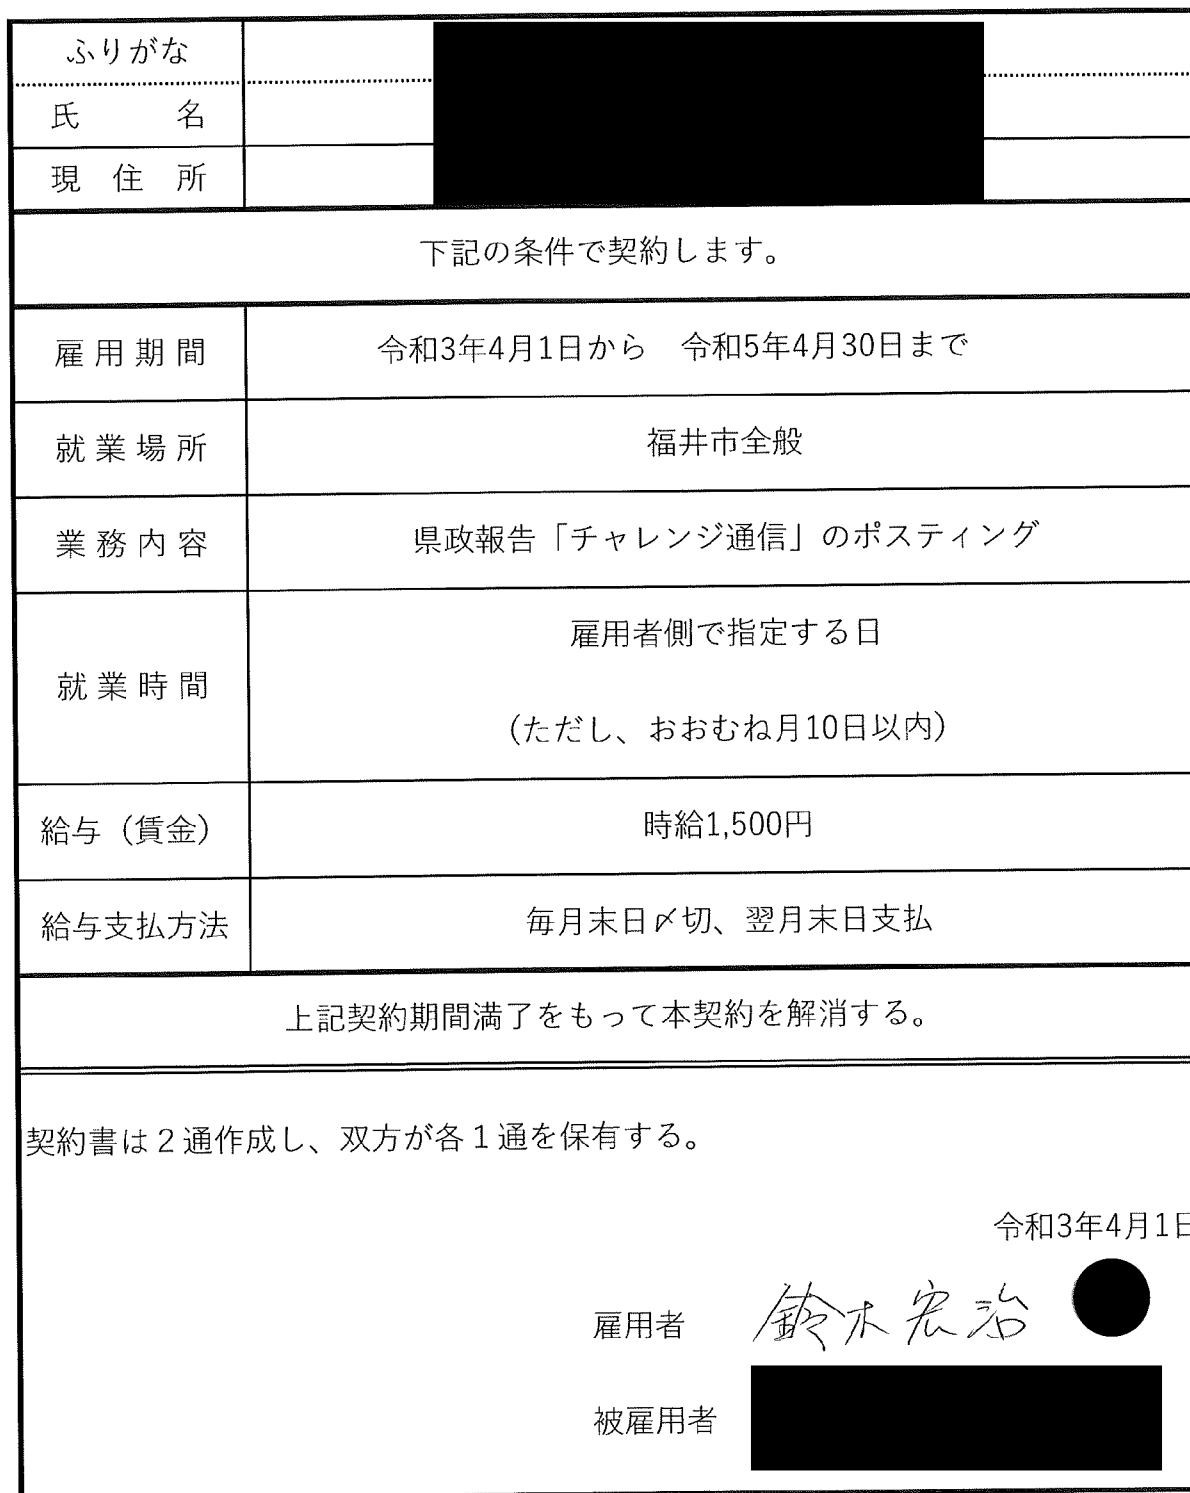 ふりがな
氏　　　名
現　住　所
下記の条件で契約します。
雇用期間　令和3年4月1日から　令和5年4月30日まで
就業場所　福井市全般
業務内容　県政報告「チャレンジ通信」のポスティング
就業時間　雇用者側で指定する日
（ただし、おおむね月10日以内）
給与（賃金）　時給1,500円
給与支払方法　毎月末日〆切、翌月末日支払
上記契約期間満了をもって本契約を解消する。
契約書は２通作成し、双方が各１通を保有する。
令和3年4月1日
雇用者　鈴木宏治
被雇用者